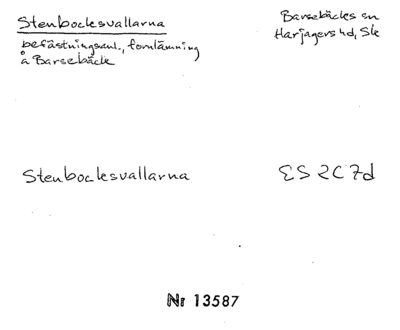 Stenbocksvallarna
befästningsanl., fornlämning
å Barsebäck
Barsebäcks sn
Harjagers hd, Sk
Stenbocksvallarna
ES 2C 7d
Nr 13587